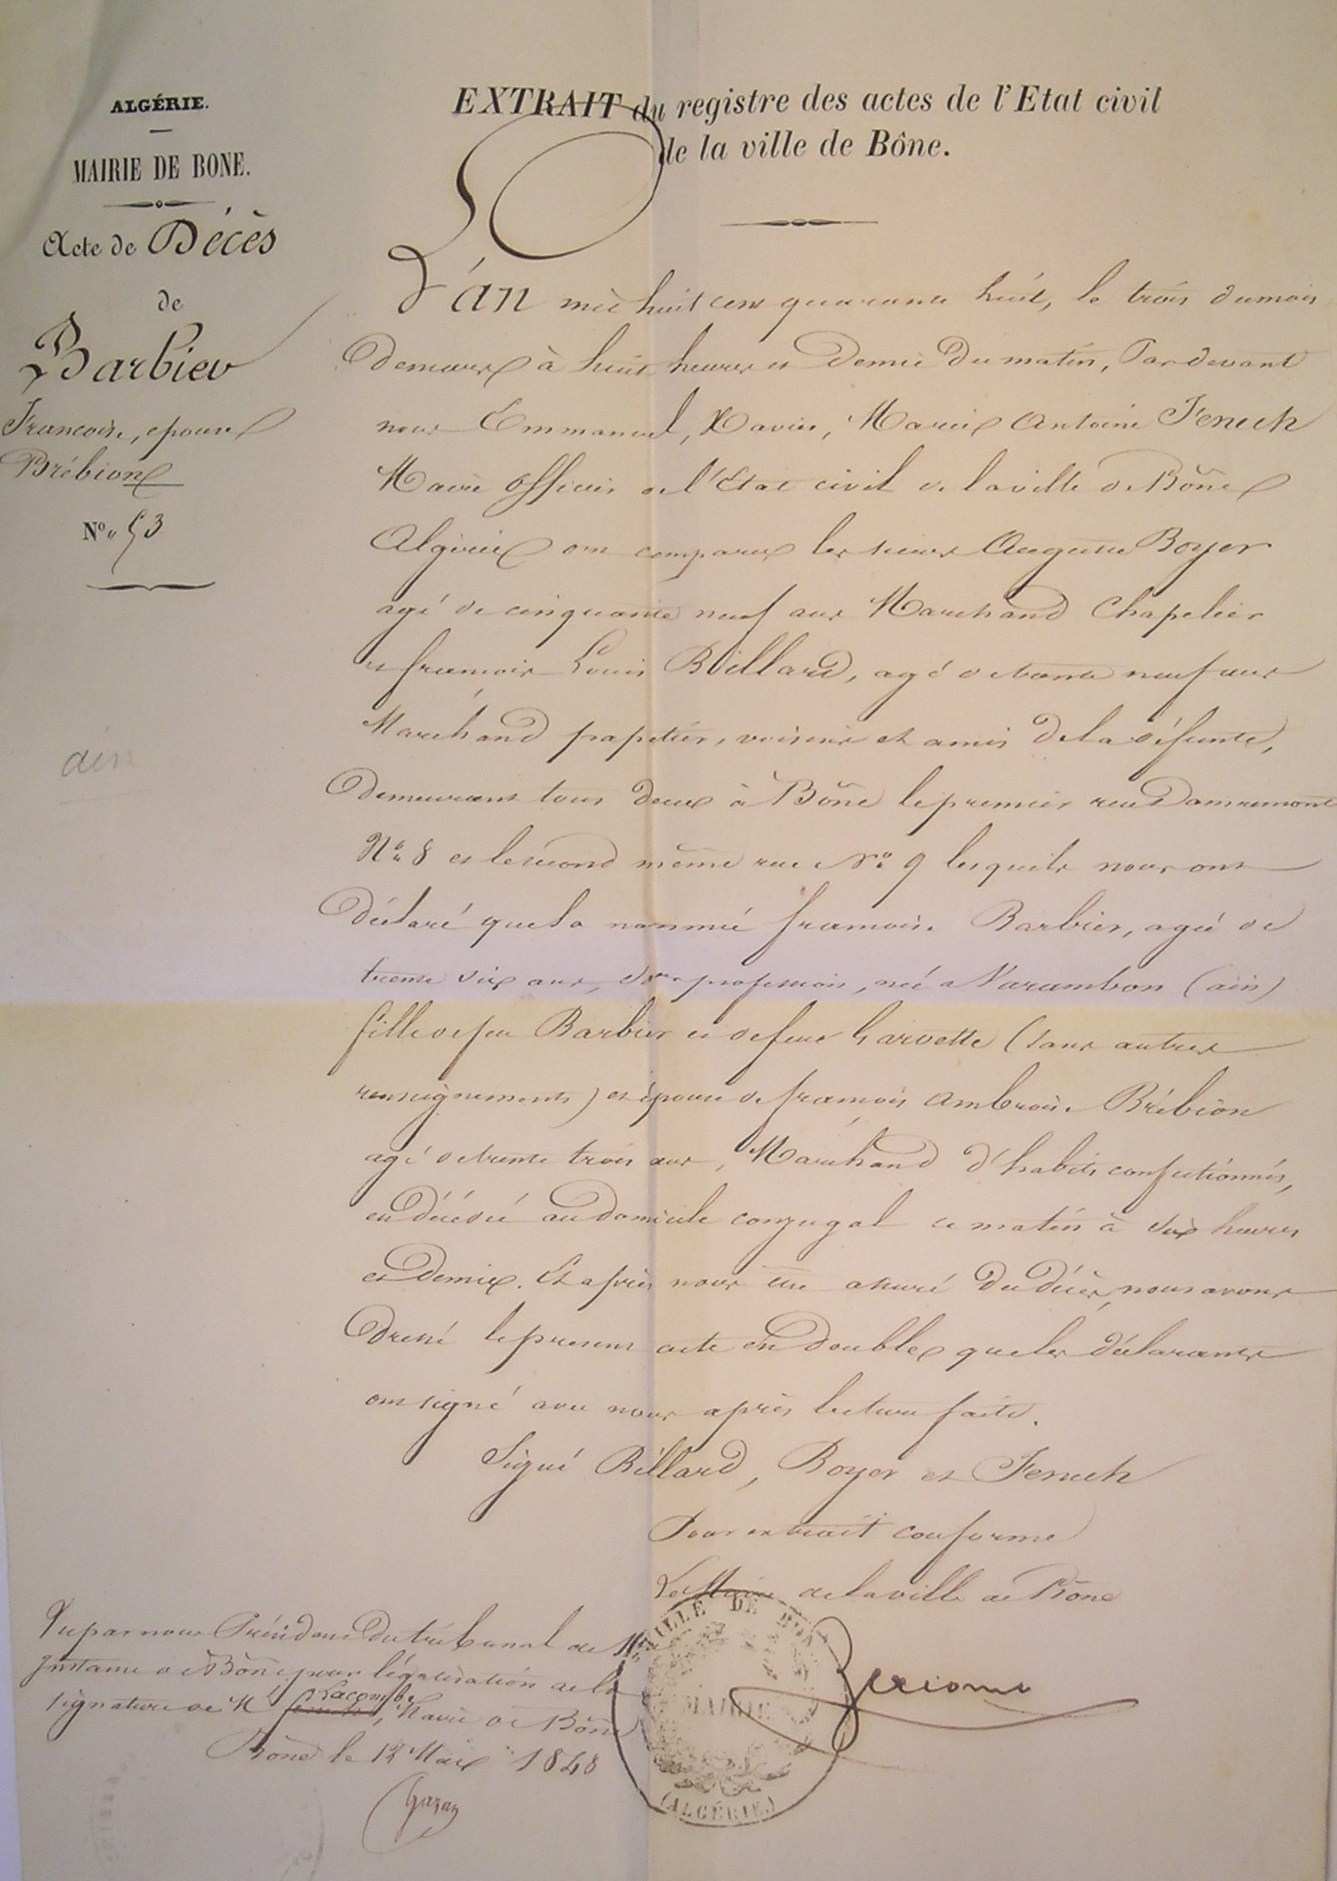 ALGÉRIE.
MAIRIE DE BONE.
Acte de Décès
de
Barbier
Francoise, epouse
Brébion
No. 53
ain
EXTRAIT du registre des actes de l'Etat civil
de la ville de Bône.
L'an mil huit cent quarante huit, le trois du mois
de mars à huit heures et demie du matin, Pardevant
nous Emmanuel, Xavier, Marie Antoine Fenech
Maire officier de l'Etat civil de la ville de Bône
Algérie ont comparu les sieurs Auguste Boyer
agé de cinquante neuf ans Marchand Chapelier
et francois Louis Billard, agé de trente neuf ans
Marchand papetier, voisins et amis de la défunte,
demeurant tous deux à Bône le premier rue Damremont
No. 8 et le second même rue No. 9 lesquels nous ont
déclaré que la nommée francoise Barbier, agée de
trente six ans, sans profession, née a Varambon (ain)
fille de feu Barbier et de feue Garvette (sans autres
renseignements) et épouse de francois Ambroise Brébion
agé de trente trois ans, Marchand d'habits confectionnés,
est décédée au domicile conjugal ce matin à six heures
et demie. Et après nous être assuré du décès, nous avons
dressé le present acte en double que les déclarants
ont signé avec nous après lecture faite.
Signé Billard, Boyer et Fenech
Pour extrait conforme
Le Maire de la ville de Bône
VILLE DE BONE
MAIRIE
(ALGÉRIE)
Vu par nous Président du tribunal de 1ère
Instance de Bône pour légalisation de la
signature de M Lacombe, Maire de Bône
Bône le 13 Mai 1848